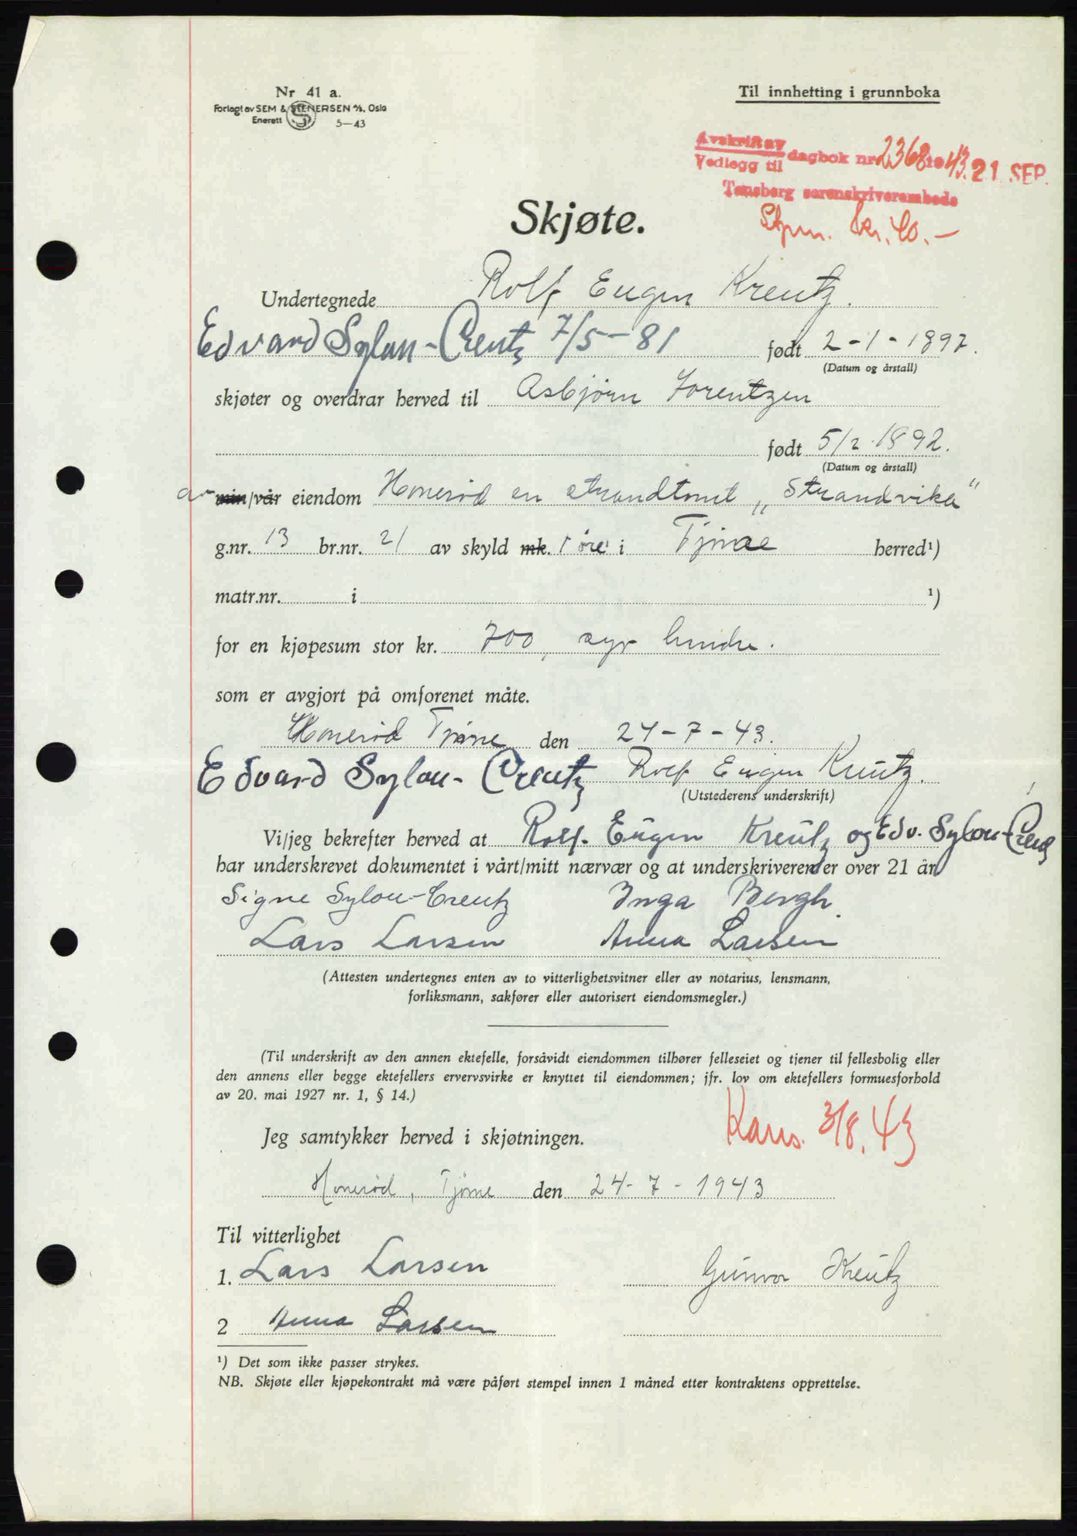 Nr 41 a.
Forlagt av SEM & STENERSEN A/S, Oslo
Enerett 5—43
Til innhefting i grunnboka
Avskrift av
Vedlegg til dagbok nr 2368 19 43. 21 SEP.
Tønsberg sorenskriverembede
Stpm. kr. 40.—
Skjøte.
Undertegnede Rolf Eugen Kreutz.
Edvard Sylou-Creutz 7/5-81 født 2-1-1897.
(Datum og årstall)
skjøter og overdrar herved til Asbjørn Lorentzen
født 5/2 1892.
(Datum og årstall)
av min/vår eiendom Honerød en strandtomt „Strandvika“
g.nr. 13 br.nr. 21 av skyld mk. 1 øre i Tjøme herred¹)
matr.nr. i ¹)
for en kjøpesum stor kr. 700, syv hundre.
som er avgjort på omforenet måte.
Honerød Tjøme den 24-7-43.
Edvard Sylou-Creutz Rolf Eugen Kreutz.
(Utstederens underskrift)
Vi/jeg bekrefter herved at Rolf Eugen Kreutz og Edv. Sylou-Creutz
har underskrevet dokumentet i vårt/mitt nærvær og at underskriveren er over 21 år
Signe Sylou-Creutz Inga Bergh.
Lars Larsen Anna Larsen
(Attesten undertegnes enten av to vitterlighetsvitner eller av notarius, lensmann,
forliksmann, sakfører eller autorisert eiendomsmegler.)
(Til underskrift av den annen ektefelle, forsåvidt eiendommen tilhører felleseiet og tjener til fellesbolig eller
den annens eller begge ektefellers ervervsvirke er knyttet til eiendommen; jfr. lov om ektefellers formuesforhold
av 20. mai 1927 nr. 1, § 14.)
Kans. 3/8. 43
Jeg samtykker herved i skjøtningen.
Honerød, Tjøme den 24-7-1943
Til vitterlighet
1. Lars Larsen Gunvor Kreutz
2 Anna Larsen
¹) Det som ikke passer strykes.
NB. Skjøte eller kjøpekontrakt må være påført stempel innen 1 måned etter kontraktens opprettelse.